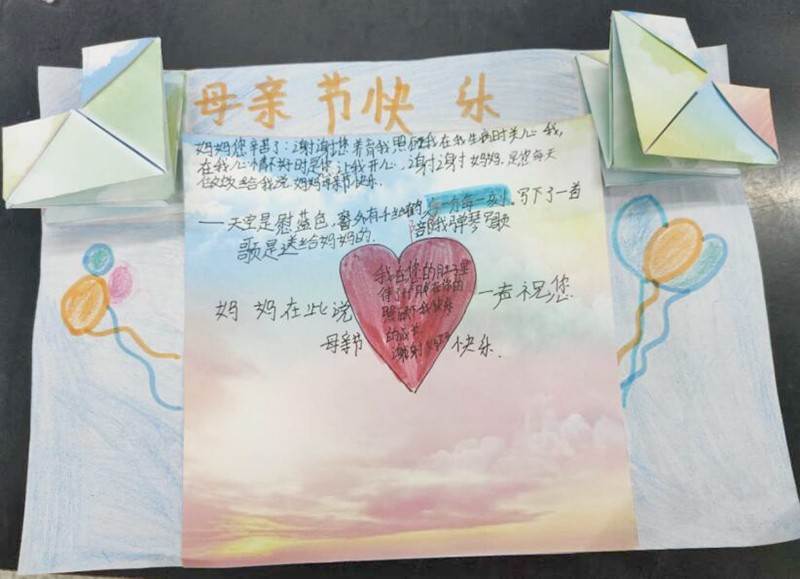 母亲节快乐
妈妈您辛苦了:谢谢您养育我照顾我在我生病时关心我,
在我心情不好时是您让我开心,谢谢妈妈,是您每天
给我说妈妈母亲节快乐.
——天空是慰蓝色,窗外有千纸鹤的,每一分每一刻,写下了一首
陪我弹琴写歌
歌是送给妈妈的.
我在您的肚子里
待了
照
快乐
的成长
谢谢妈妈
妈妈在此说 一声祝您
母亲节 快乐.